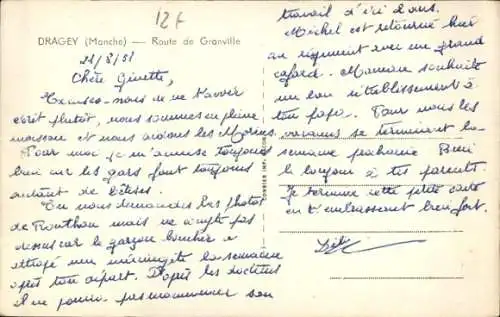 12F
DRAGEY (Manche) — Route de Granville
21/8/51
Chère Ginette,
Excuses-nous de ne t'avoir
écrit plutôt, nous sommes en pleine
moisson et nous aidons les
Pour moi je m'amuse toujours
bien car les gars font toujours
autant de bêtises.
Tu nous demandes les photos
de mais ne compte pas
dessus car le garçon boucher a
attrapé une méningite la semaine
après ton départ. D'après les docteurs
il ne pourra pas recommencer son
travail d'ici 2 ans.
Michel est retourné hier
au régiment avec un grand
cafard. Maman souhaite
un bon rétablissement à
ton papa. Pour nous les
vacances se terminent la
semaine prochaine. Bien
le bonjour à tes parents.
Je termine cette petite carte
en t'embrassant bien fort.